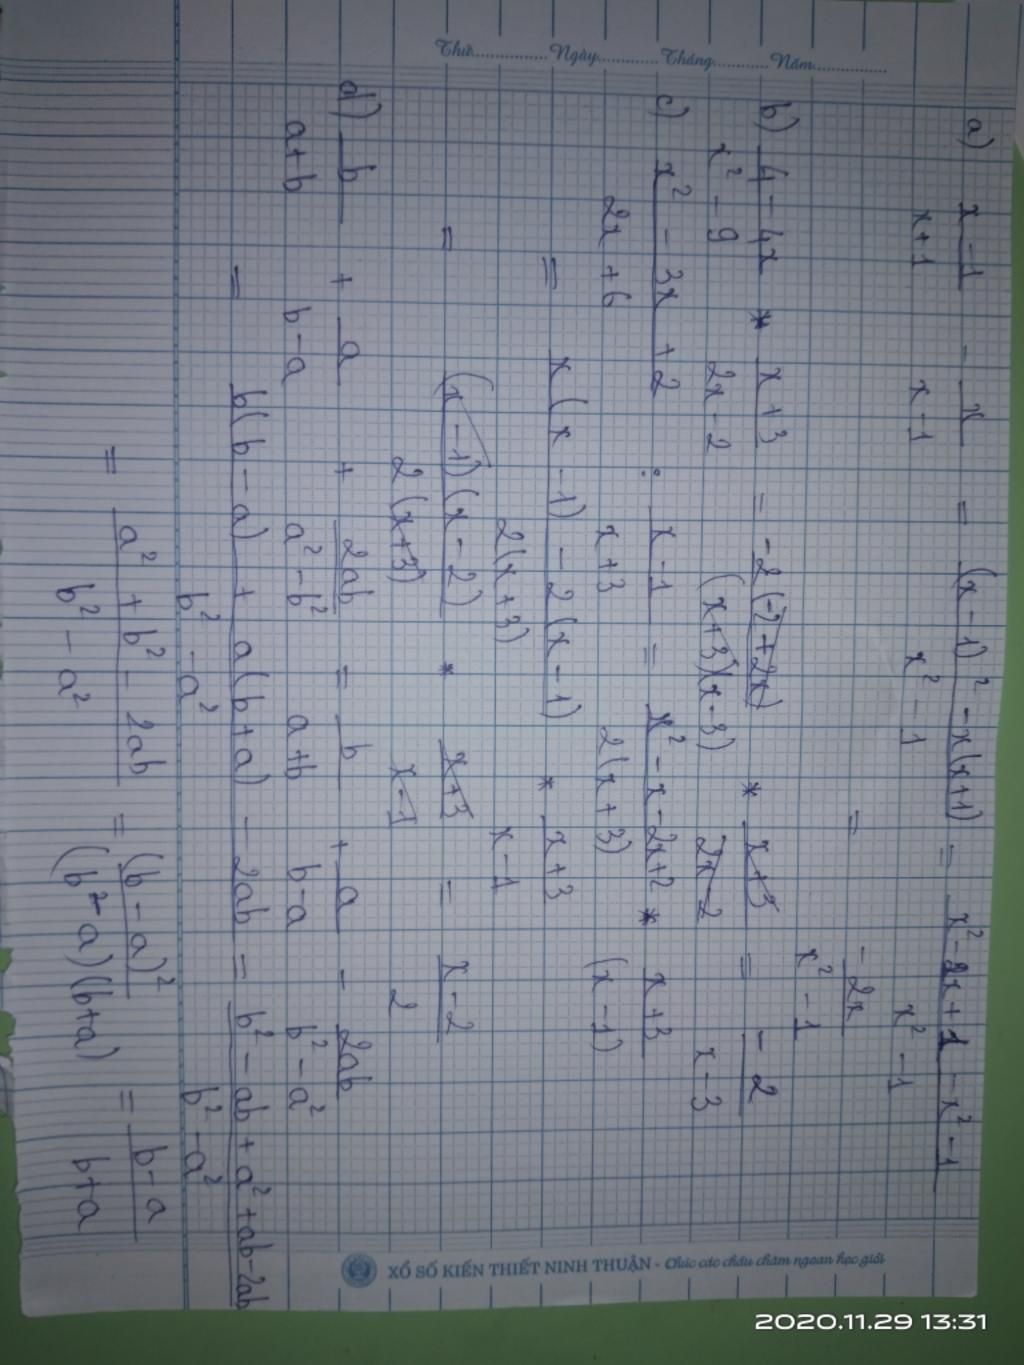 Thứ............Ngày............Tháng............Năm............
a) (x - 1)/(x + 1) - x/(x - 1) = ((x - 1)² - x(x + 1))/(x² - 1) = (x² - 2x + 1 - x² - 1)/(x² - 1)
= (-2x)/(x² - 1)
b) (4 - 4x)/(x² - 9) * (x + 3)/(2x - 2) = (-2(-2 + 2x))/((x + 3)(x - 3)) * (x + 3)/(2x - 2) = (-2)/(x - 3)
c) (x² - 3x + 2)/(2x + 6) : (x - 1)/(x + 3) = (x² - x - 2x + 2)/(2(x + 3)) * (x + 3)/(x - 1)
= (x(x - 1) - 2(x - 1))/(2(x + 3)) * (x + 3)/(x - 1)
= ((x - 1)(x - 2))/(2(x + 3)) * (x + 3)/(x - 1) = (x - 2)/2
d) b/(a + b) + a/(b - a) + 2ab/(a² - b²) = b/(a + b) + a/(b - a) - 2ab/(b² - a²)
= (b(b - a) + a(b + a) - 2ab)/(b² - a²) = (b² - ab + a² + ab - 2ab)/(b² - a²)
= (a² + b² - 2ab)/(b² - a²) = (b - a)²/((b² - a)(b + a)) = (b - a)/(b + a)
XỔ SỐ KIẾN THIẾT NINH THUẬN - Chúc các cháu chăm ngoan học giỏi
2020.11.29 13:31